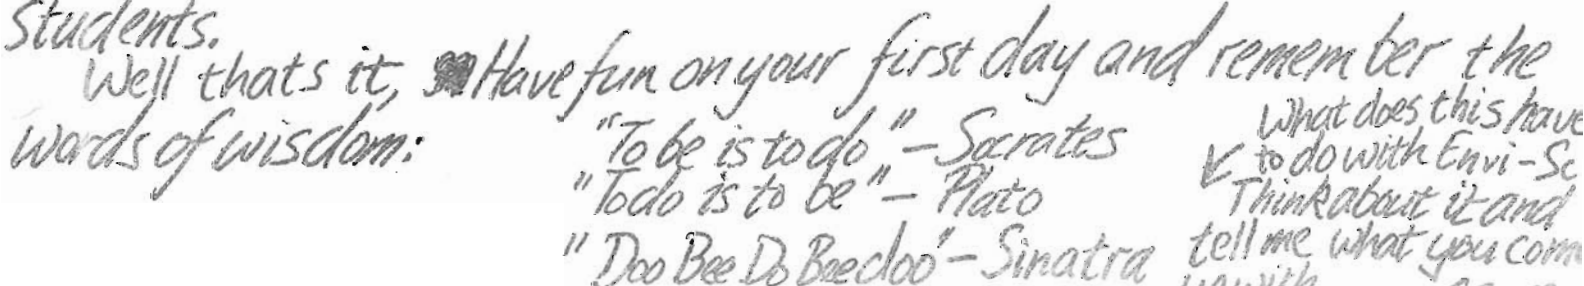 students.
Well thats it, Have fun on your first day and remember the
words of wisdom:
"To be is to do" - Socrates
"To do is to be" - Plato
"Doo Bee Do Bee doo" - Sinatra
What does this have
to do with Envi-Sc
Think about it and
tell me what you com
up with